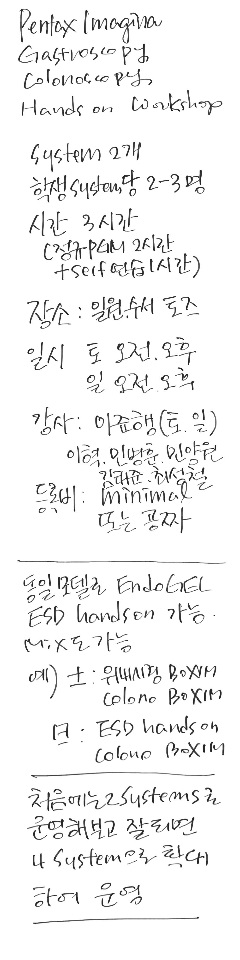 Pentax Imagina
Gastroscopy
Colonoscopy
Hands on Workshop
System 2개
학생 System당 2-3명
시간 3시간
(정규PGM 2시간
+self 연습 1시간)
장소: 일원.수서 토즈
일시 토 오전.오후
일 오전.오후
강사: 이준행(토.일)
이혁.민병훈.민양원
김태준.최성철
등록비: minimal
또는 공짜
동일모델로 EndoGEL
ESD hands on 가능.
Mix도 가능
예) 土: 위내시경 BOXIM
Colono BOXIM
日: ESD hands on
Colono BOXIM
처음에는 2 Systems로
운영해보고 잘되면
4 System으로 확대
하여 운영